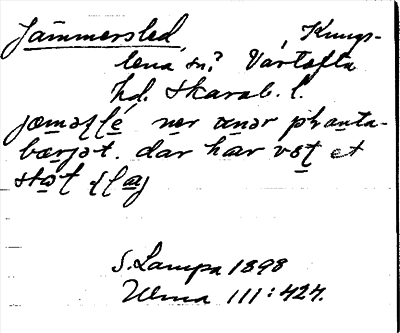 Jämmersled, Kungs-
lena sn? Vartofta
hd. Skarab. l.
jæməʃlé nər ænər planta-
bærjət. där har vət et
stət
S. Lampa 1898
Ulma 111:424.